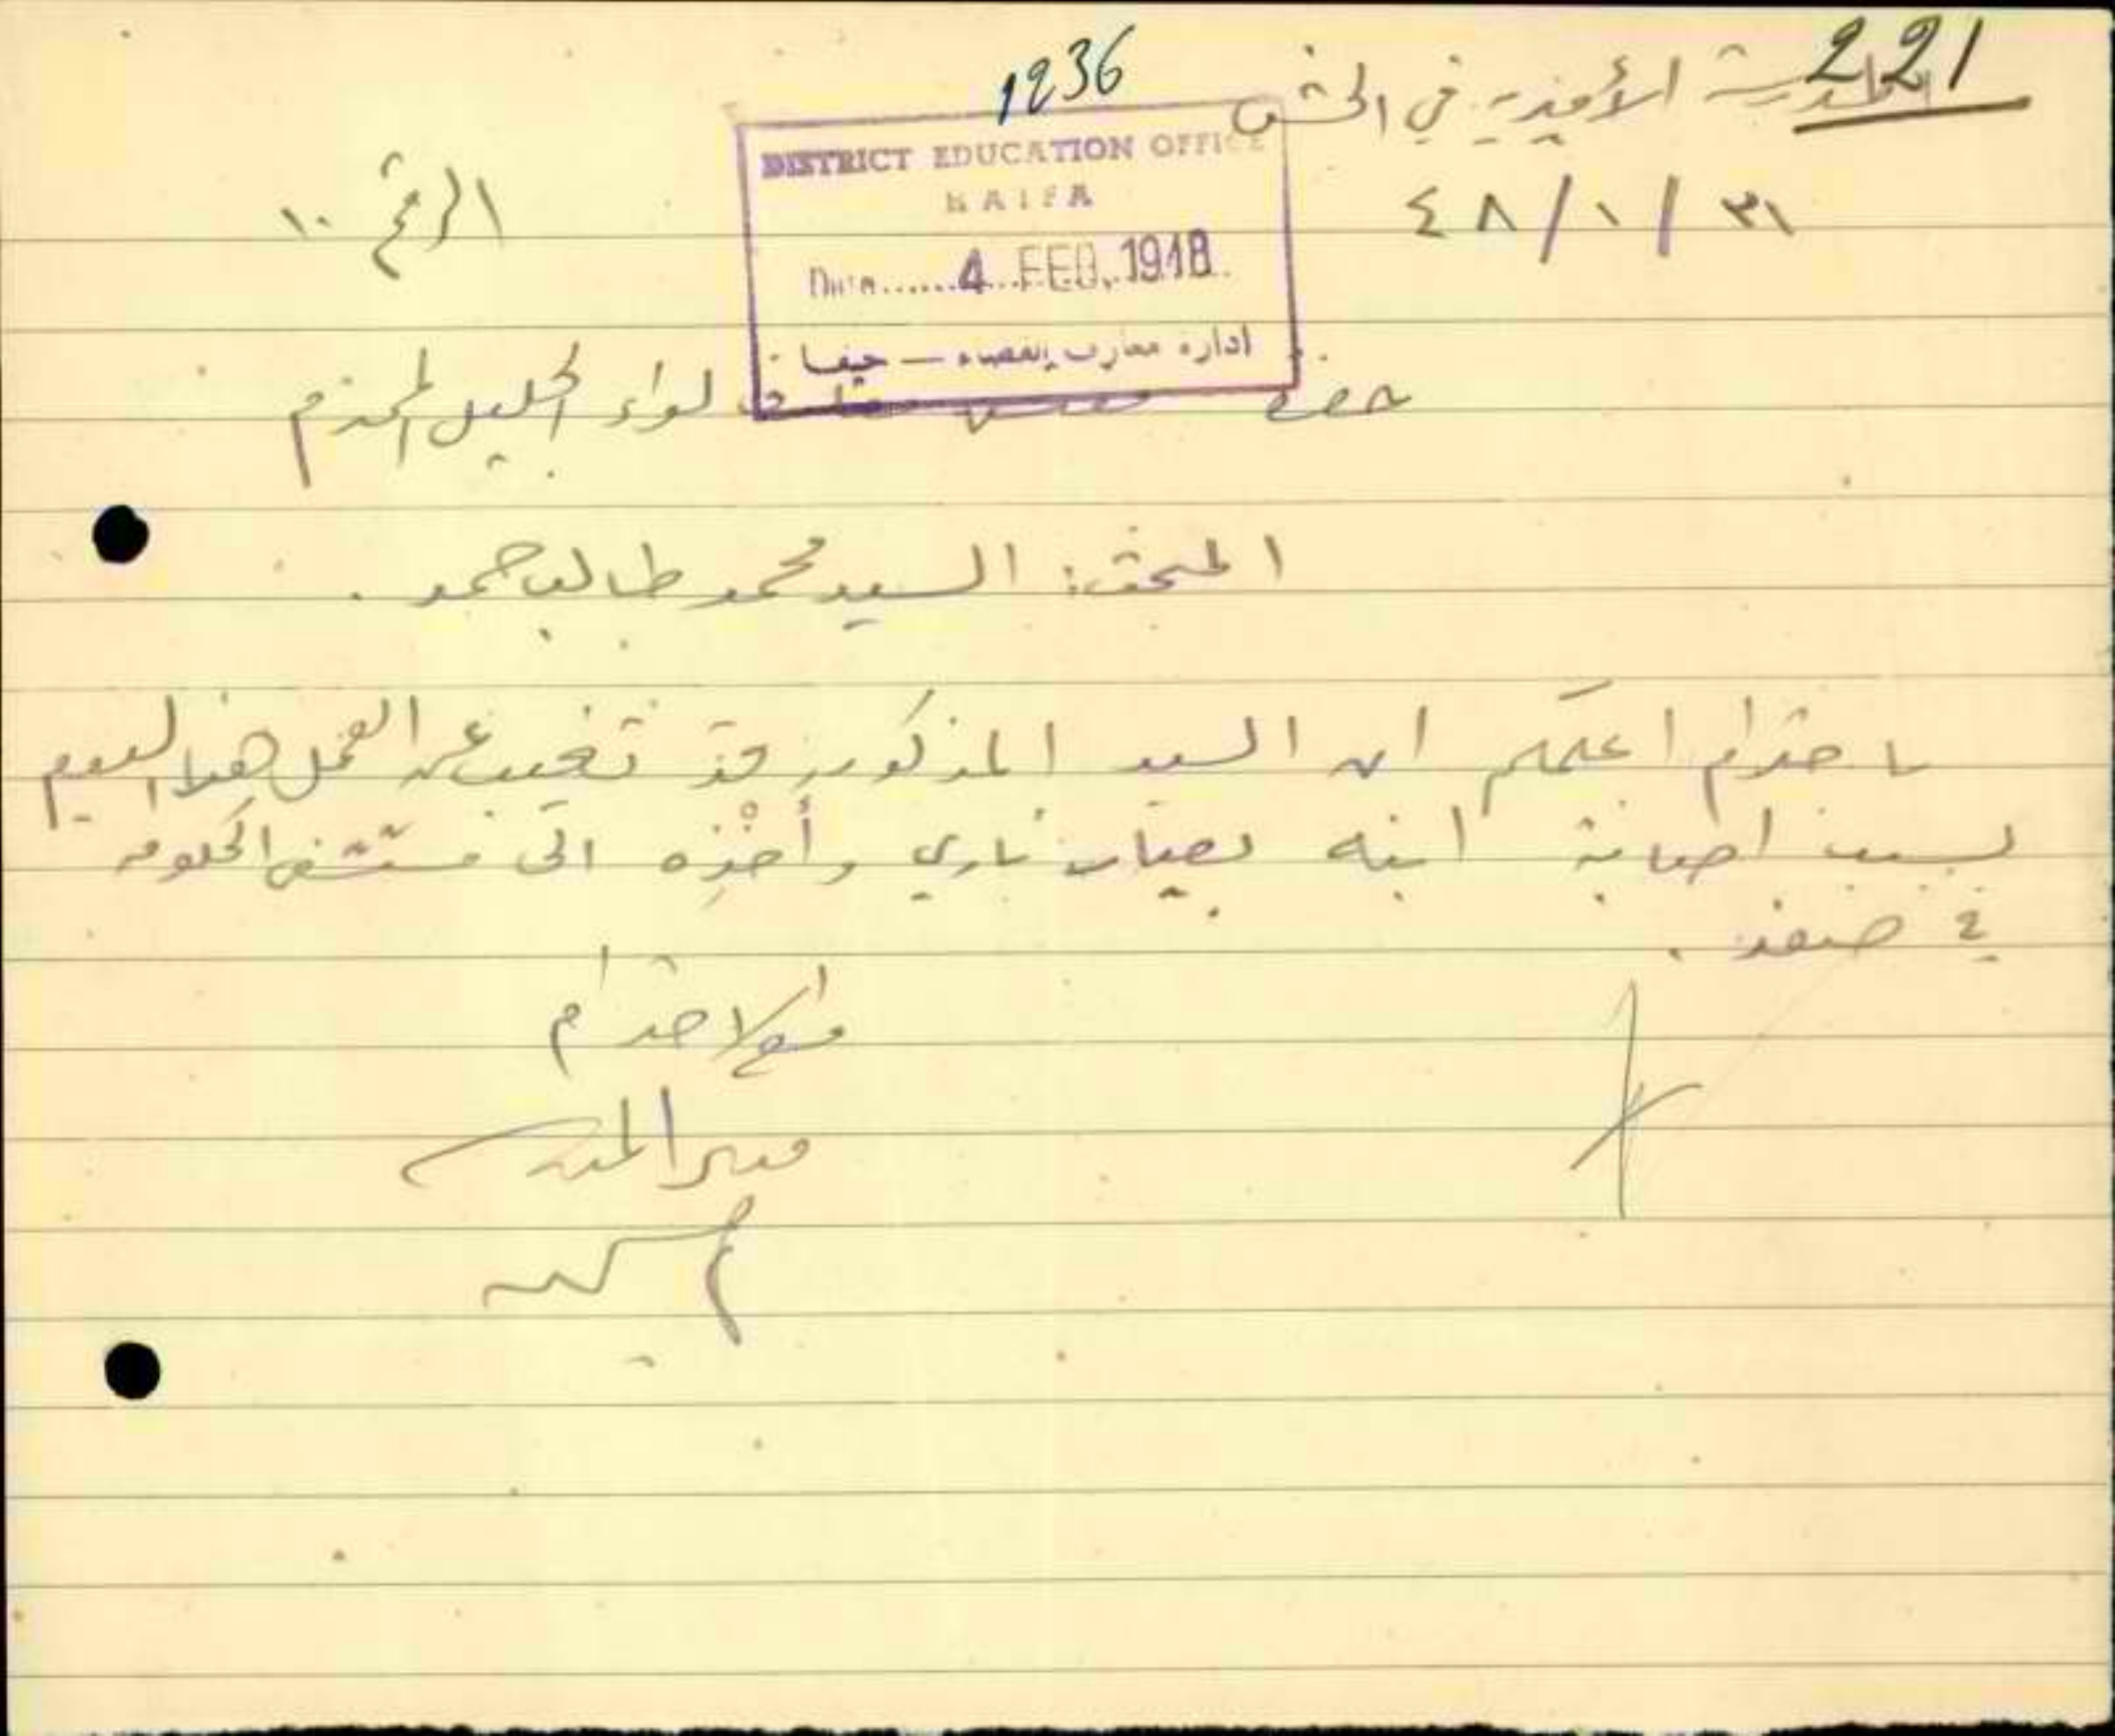 221
1236
المدرسة الأميرية في الجش
DISTRICT EDUCATION OFFICE
HAIFA
Date......4...FEB. 1948
ادارة معارف القضاء – حيفا
٣١/١/٤٨
الرقم ١٠
حضرة مفتش معارف لواء الجليل المحترم
المبحث: السيد محمد طالب حمد.
باحترام اعلمكم ان السيد المذكور قد تغيب عن العمل هذا اليوم
بسبب اصابة ابنه بعيار ناري وأخْذِه الى مستشفى الحكومة
في صفد.
مع الاحترام
مدير المدرسة